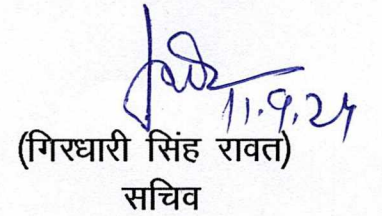 11.9.24
(गिरधारी सिंह रावत)
सचिव